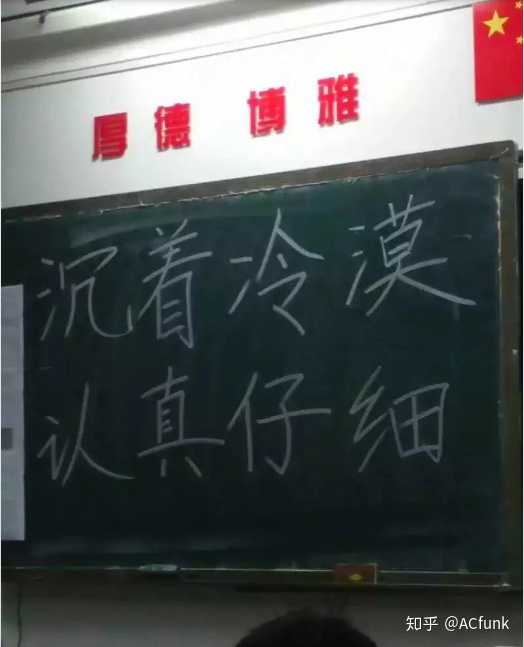 厚德 博雅
沉着冷漠
认真仔细
知乎 @ACfunk